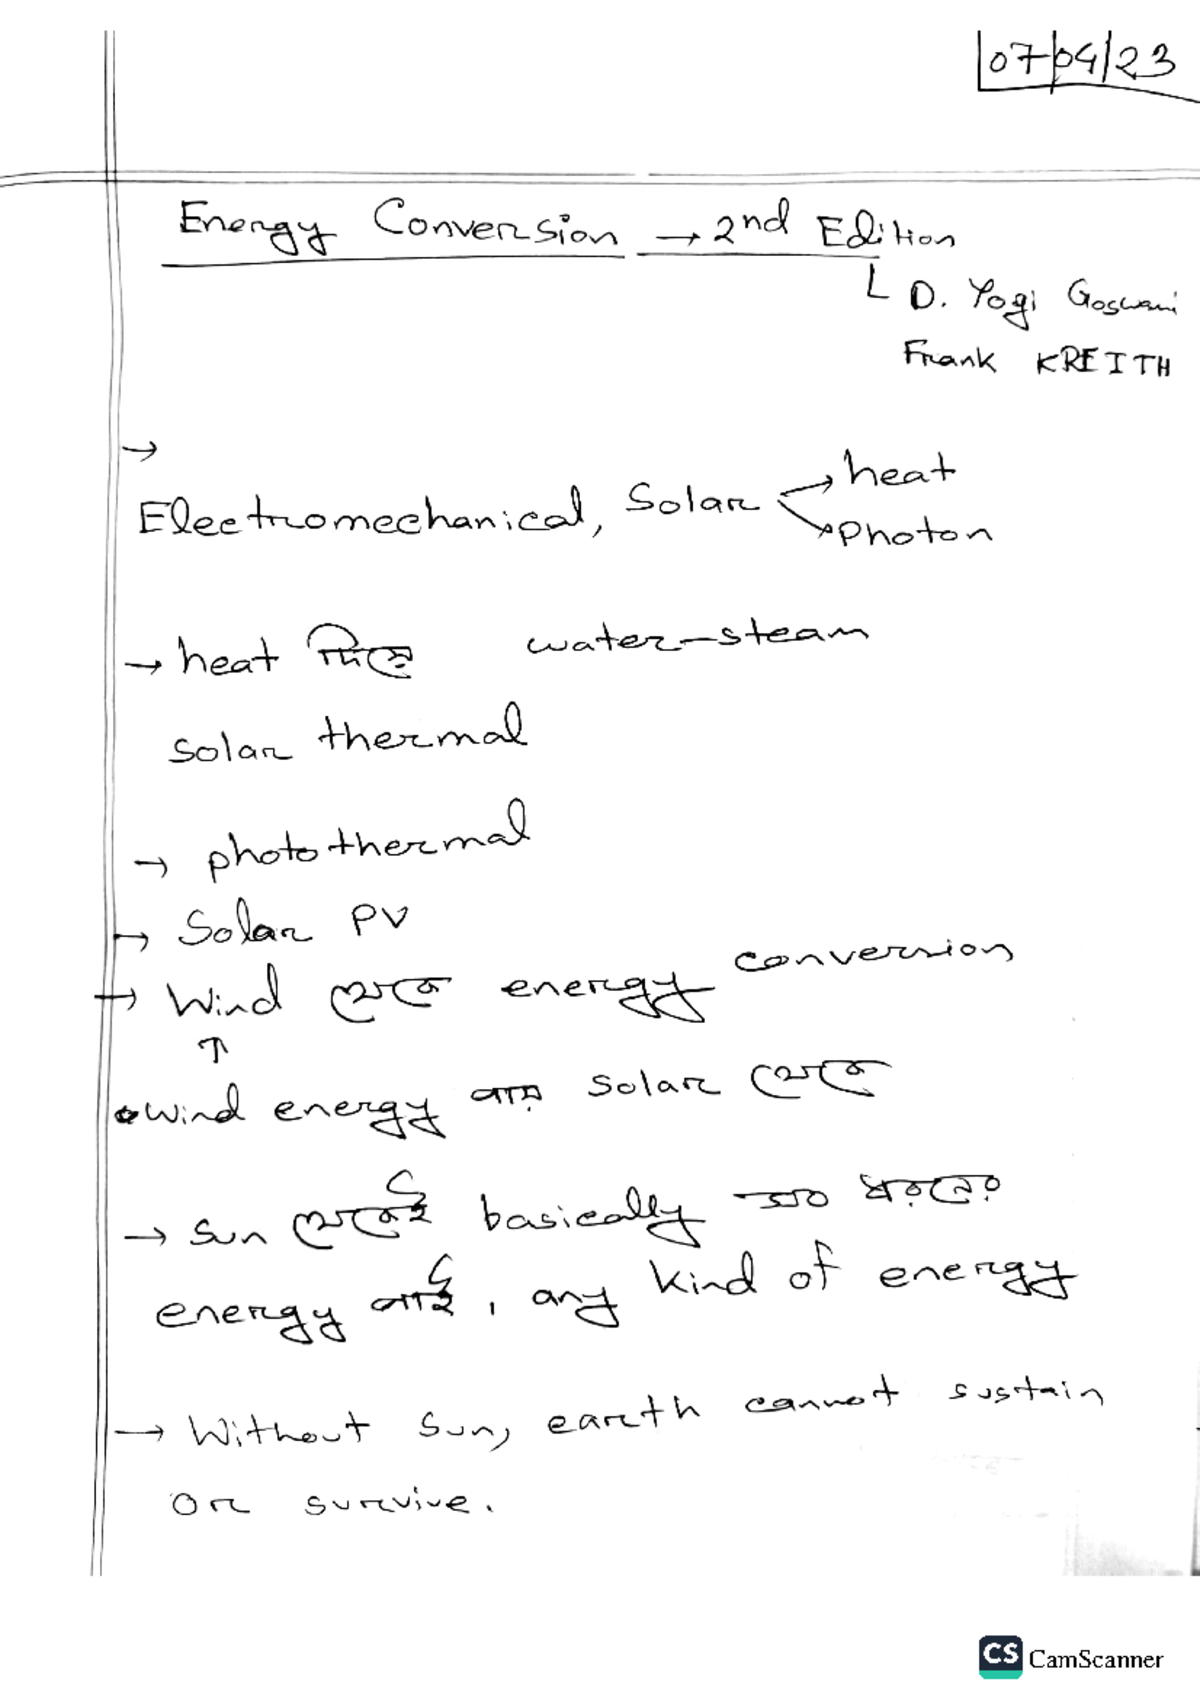 07/04/23
Energy Conversion → 2nd Edition
D. Yogi Goswami
Frank KREITH
→
Electromechanical, Solar → heat
→ Photon
→ heat দিয়ে water-steam
solar thermal
→ photothermal
→ Solar PV
→ Wind থেকে energy conversion
↑
wind energy পায় solar থেকে
→ Sun থেকেই basically সব ধরনের
energy পাই, any kind of energy
→ Without sun, earth cannot sustain
or survive.
CS CamScanner